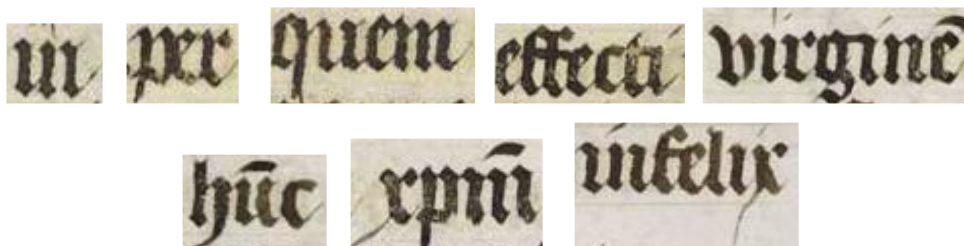 in per quem effecti virginē
hūc xpm̄ infelix